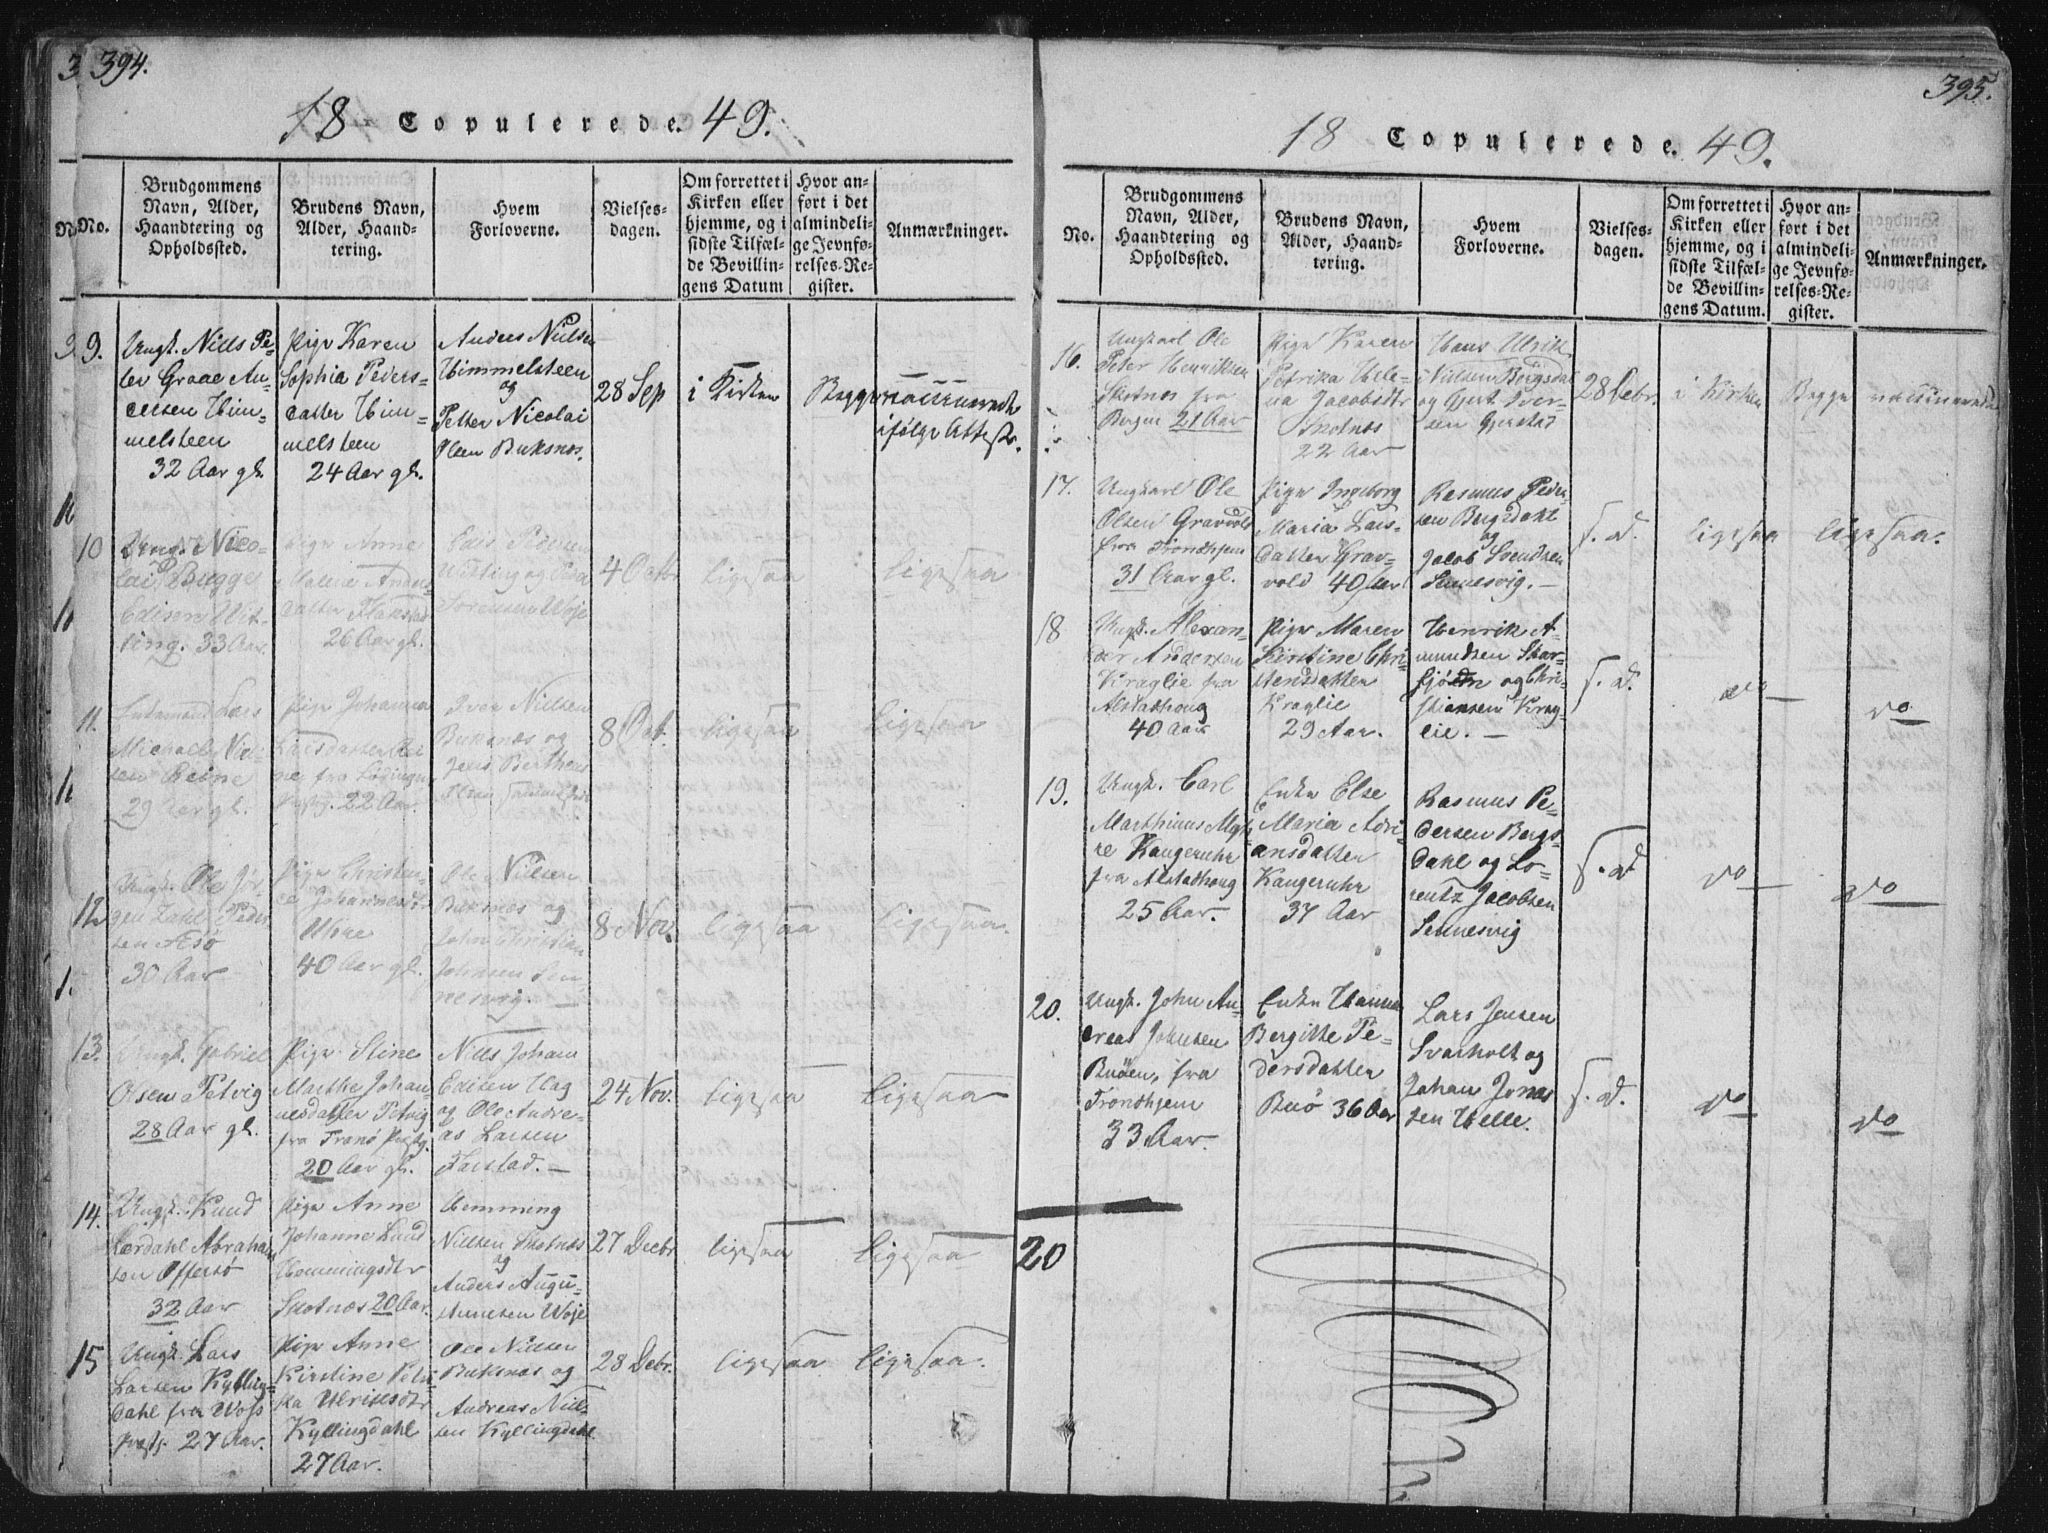 394.
18 Copulerede. 49.
No.
Brudgommens
Navn, Alder,
Haandtering og
Opholdssted.
Brudens Navn,
Alder, Haand-
tering.
Hvem
Forloverne.
Vielses-
dagen.
Om forrettet i
Kirken eller
hjemme, og i
sidste Tilfæl-
de Bevillin-
gens Datum
Hvor an-
ført i det
almindeli-
ge Jevnfø-
relses-Re-
gister.
Anmærkninger.
9.
Ungk. Niels Pe-
ter Graae An-
dersen Him-
melsteen
32 Aar gl.
Pige Karen
Sophia Peders-
datter Him-
melsteen
24 Aar gl.
Anders Nielsen
Himmelsteen
og
Petter Nicolai
Olsen Buksnæs.
28 Sep
i Kirken
Begge vaccinerede
ifølge Attest.
10
Ungk. Nico-
lai Bugge
Edisen Wit-
ting. 33 Aar.
Pige Anne
Maria Anders
datter
26 Aar gl.
Edis
Witting og Peder
Sørensen Woje
4 Octbr
ligesaa
ligesaa
11.
Enkemand Lars
Michael
sen Reine
29 Aar gl.
Pige Johanna
Larsdatter Rei
ne fra Lødingen
Prstg. 22 Aar.
Iver Nielsen
Buksnæs og
Jens Bertheus
8 Oct.
ligesaa
ligesaa
12
Ungk. Ole Jør-
gen Dahl Peder
sen Æsø
30 Aar
Pige Christen-
ce Johannesdtr
Uhre
40 Aar gl.
Ole Nielsen
Buksnæs og
John Christian
Johnsen Sen-
nesvig. —
8 Nov.
ligesaa
ligesaa.
13.
Ungk. Gabriel
Olsen Petvig
28 Aar gl.
Pige Stine
Marthe Johan-
nesdatter Petvig
fra Tranø Prstg.
20 Aar gl.
Niels Johan
Edisen Hag
og Ole Andre-
as Larsen
Farstad. —
24 Nov.
ligesaa
ligesaa
14.
Ungk. Knud
Lærdahl Abraham
sen Offersø
32 Aar
Pige Anne
Johanne Lund
Hemmingsdtr
Skotnæs 20 Aar.
Hemming
Nielsen Skotnæs
og
Anders Augu-
stinusen Woje
27 Decbr
ligesaa
ligesaa
15
Ungk. Lars
Larsen Kylling-
dahl fra Woss
Prestg. 27 Aar.
Pige Anne
Kirstine Petri-
ka Ulriksdtr
Kyllingdahl
27 Aar.
Ole Nielsen
Buksnæs og
Andreas Niel-
sen Kyllingdahl
28 Debr.
ligesaa
ligesaa.
395.
18 Copulerede. 49.
No.
Brudgommens
Navn, Alder,
Haandtering og
Opholdssted.
Brudens Navn,
Alder, Haand-
tering.
Hvem
Forloverne.
Vielses-
dagen.
Om forrettet i
Kirken eller
hjemme, og i
sidste Tilfæl-
de Bevillin-
gens Datum.
Hvor an-
ført i det
almindeli-
ge Jevnfø-
relses-Re-
gister.
Anmærkninger.
16.
Ungkarl Ole
Peter Henriksen
Skotnes fra
Bergen 21 Aar
Pige Karen
Petrika Hele-
na Jacobsdtr
Skotnæs
22 Aar
Hans Ulrik
Nielsen Bergsdal
og Gjert Iver-
sen Gjerstad
28 Debr.
i Kirken
Begge vaccinerede
17.
Ungkarl Ole
Olsen Gravvold
fra Trondhjem
31 Aar gl.
Pige Ingeborg
Maria Lars-
datter Grav-
vold 40 Aar
Rasmus Peder-
sen Bergsdahl
og
Jacob Svendsen
Sennesvig. —
S. D.
ligesaa
ligesaa.
18
Ungk. Alexan-
der Andersen
Kraglie fra
Alstadhoug
40 Aar
Pige Maren
Kirstine Chri-
stensdatter
Kraglie
29 Aar.
Henrik A-
mundsen Star-
fjord og Chri-
stiansen Krag-
lie. —
S. D.
do —
do
19.
Ungk. Carl
Marthinus Myh-
re Kangeruhr
fra Alstadhoug
25 Aar. —
Enke Else
Maria Adri-
ansdatter
Kangeruhr
37 Aar
Rasmus Pe-
dersen Bergs-
dahl og Lo-
rentz Jacobsen
Sennesvig
S. D
do —
do
20.
Ungk. John An-
dreas Johnsen
Buöen, fra
Trondhjem
33 Aar.
Enke Hanna
Bergitte Pe-
dersdatter
Buö 36 Aar
Lars Jensen
Svarholt og
Johan Jonas
sen Helle.
S. D.
do
do
20